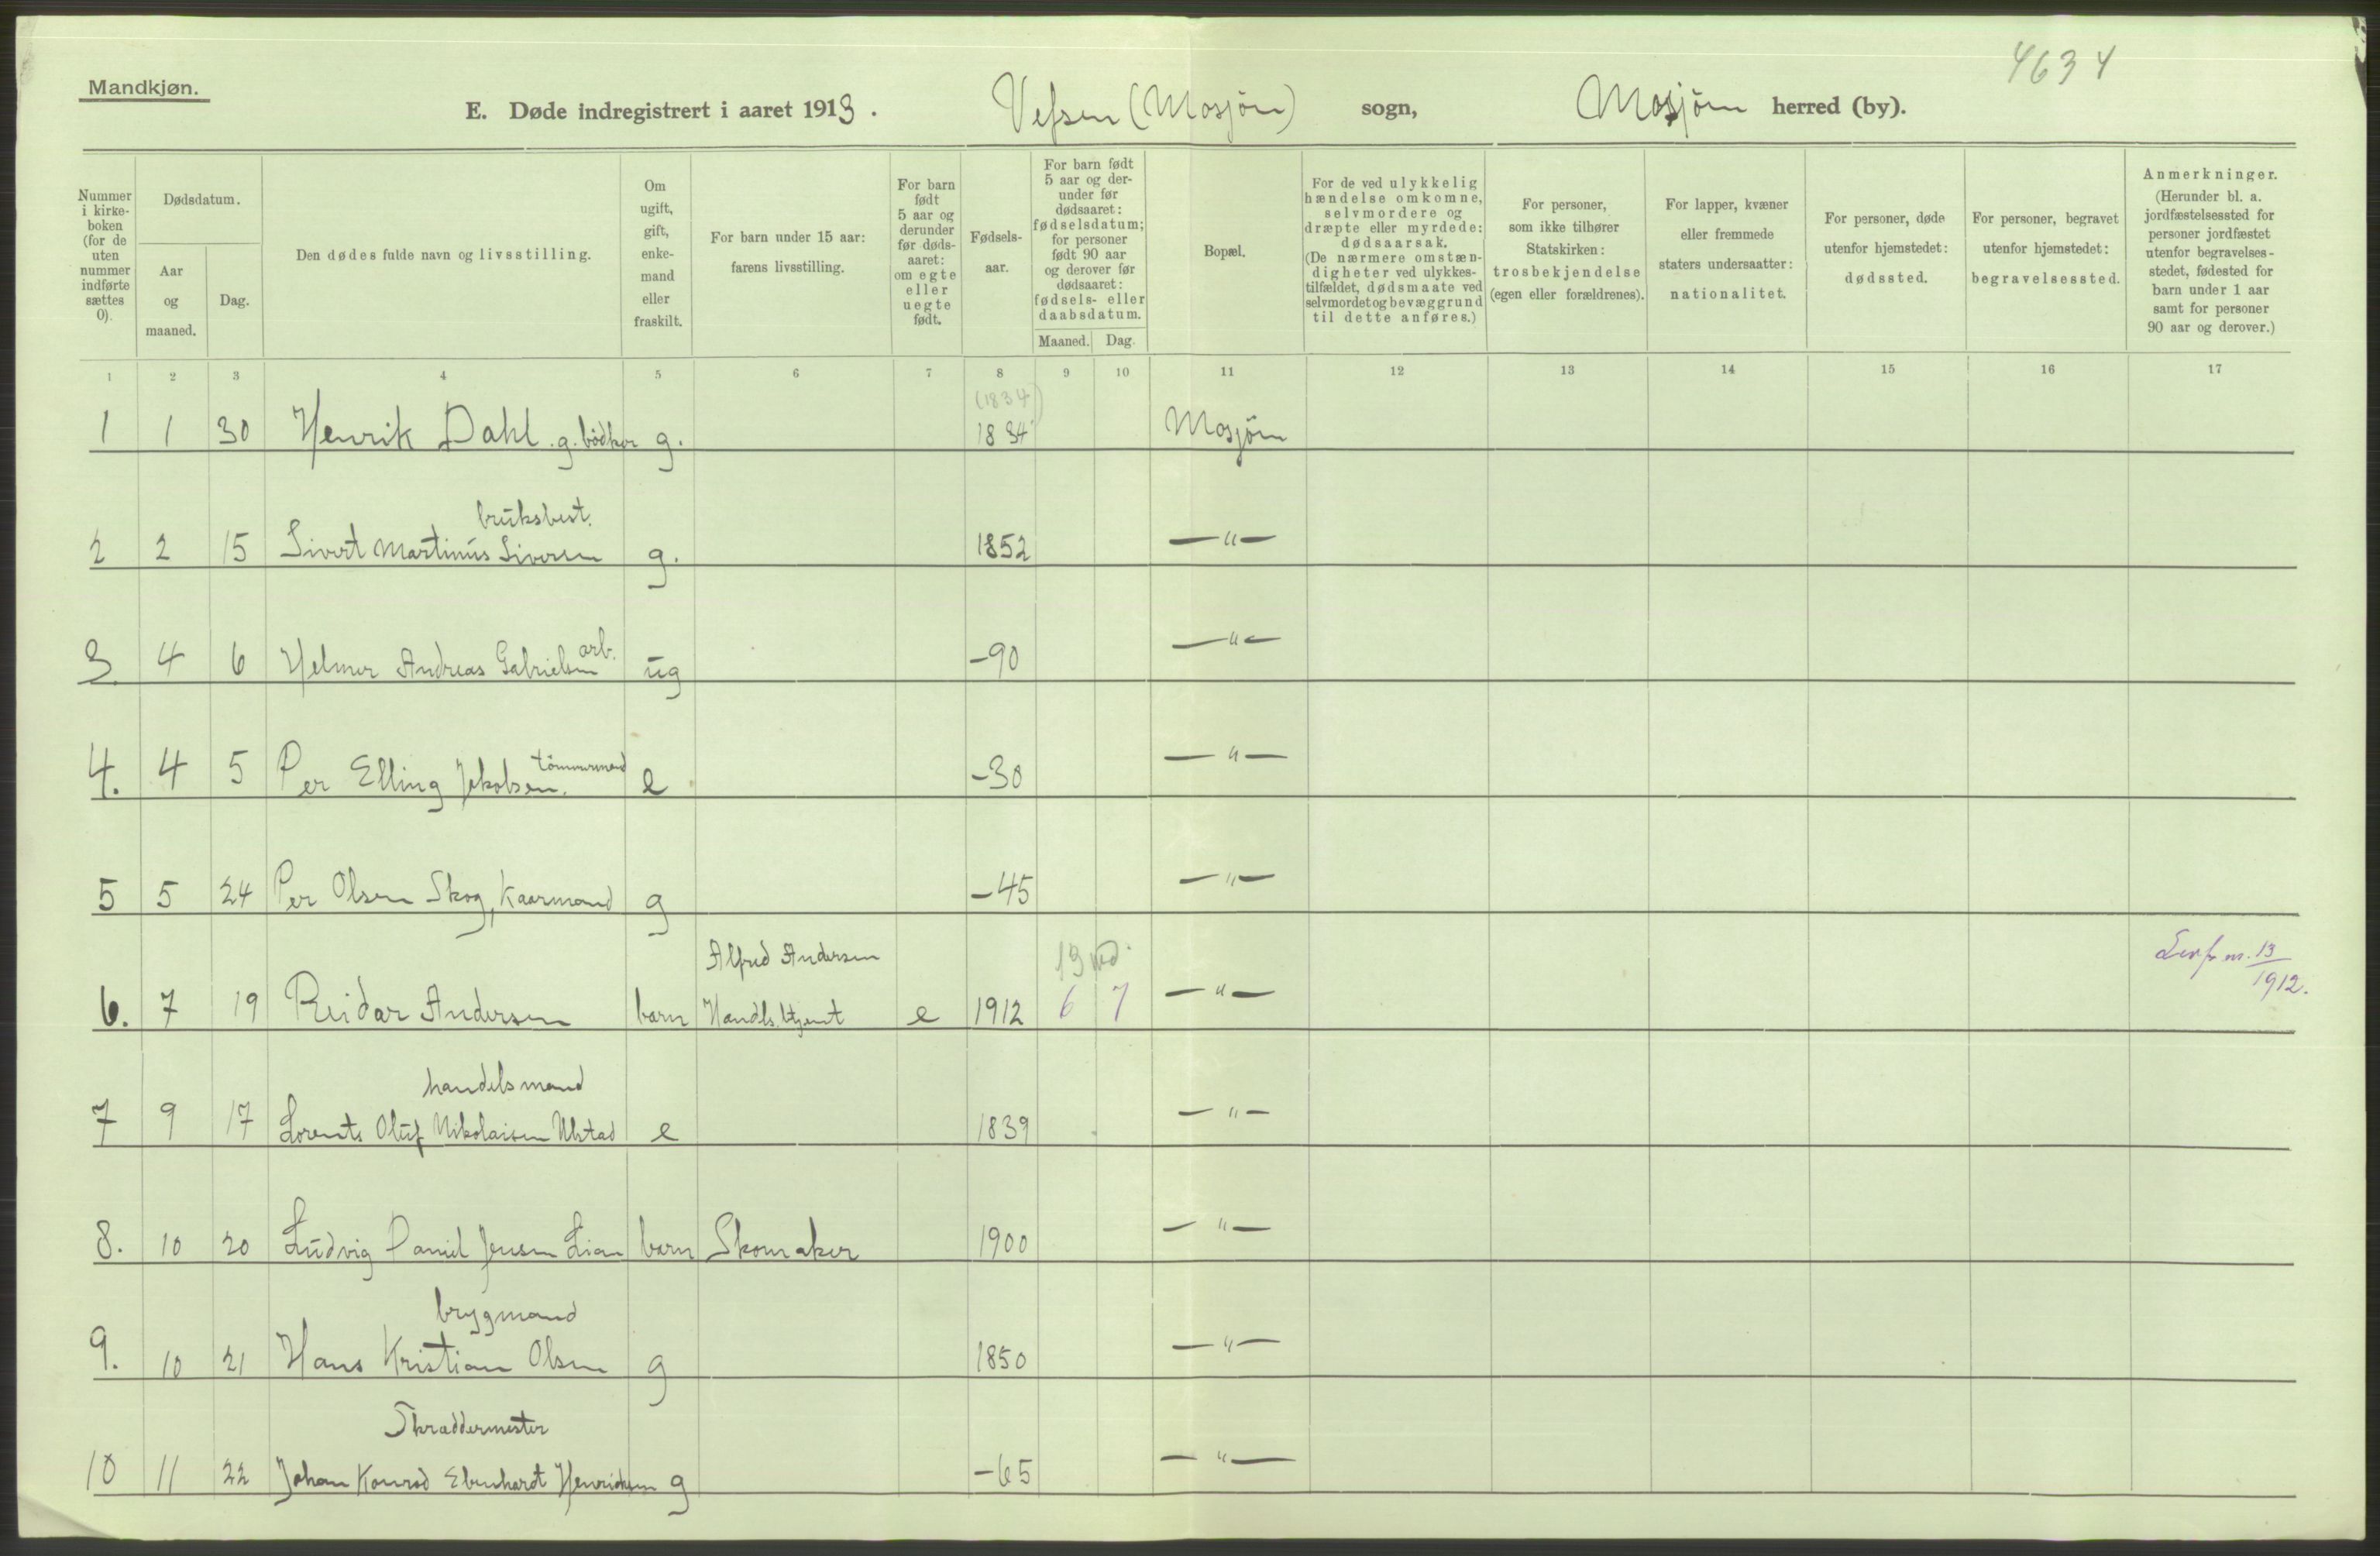 4634
Mandkjøn.
E. Døde indregistrert i aaret 1913. Vefsen (Mosjöen) sogn, Mosjöen herred (by).
Nummer i kirkeboken (for de uten nummer indførte sættes 0).
Dødsdatum.
Aar og maaned.
Dag.
Den dødes fulde navn og livsstilling.
Om ugift, gift, enkemand eller fraskilt.
For barn under 15 aar: farens livsstilling.
For barn født 5 aar og derunder før dødsaaret: om egte eller uegte født.
Fødselsaar.
For barn født 5 aar og derunder før dødsaaret: fødselsdatum; for personer født 90 aar og derover før dødsaaret: fødsels- eller daabsdatum.
Maaned. Dag.
Bopæl.
For de ved ulykkelig hændelse omkomne, selvmordere og dræpte eller myrdede: dødsaarsak. (De nærmere omstændigheter ved ulykkestilfældet, dødsmaate ved selvmordet og bevæggrund til dette anføres.)
For personer, som ikke tilhører Statskirken: trosbekjendelse (egen eller forældrenes).
For lapper, kvæner eller fremmede staters undersaatter: nationalitet.
For personer, døde utenfor hjemstedet: dødssted.
For personer, begravet utenfor hjemstedet: begravelsessted.
Anmerkninger. (Herunder bl. a. jordfæstelsessted for personer jordfæstet utenfor begravelsesstedet, fødested for barn under 1 aar samt for personer 90 aar og derover.)
1 2 3 4 5 6 7 8 9 10 11 12 13 14 15 16 17
(1834)
1 1 30 Henrik Dahl. g. bödker g. 1834 Mosjöen
bruksbest.
2 2 15 Sivert Martinus Siversen g. 1852 —"—
arb.
3 4 6 Helmer Andreas Gabrielsen ug -90 —"—
tömmermand
4. 4 5 Per Elling Jakobsen. e -30 —"—
5 5 24 Per Olsen Skog, Kaarmand g -45 —"—
Alfred Andersen
6. 7 19 Reidar Andersen barn Handls.btjent e 1912 6 7 —"— 13/1912.
handelsmand
7 9 17 Lorents Oluf Nikolaisen Ulstad e 1839 —"—
8. 10 20 Ludvig Daniel Jensen Lian barn Skomaker 1900 —"—
brygmand
9. 10 21 Hans Kristian Olsen g 1850 —"—
Skræddermester
10 11 22 Johan Konrad Ebenhardt Henriksen g -65 —"—